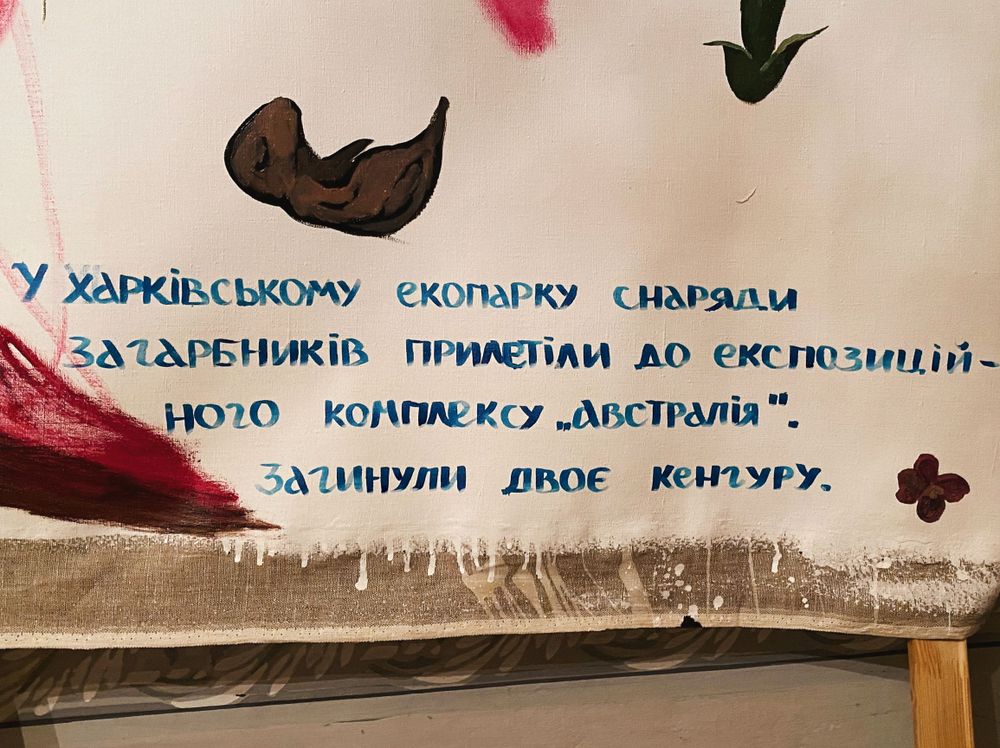 У ХАРКІВСЬКОМУ ЕКОПАРКУ СНАРЯДИ
ЗАГАРБНИКІВ ПРИЛЕТІЛИ ДО ЕКСПОЗИЦІЙ-
НОГО КОМПЛЕКСУ „АВСТРАЛІЯ".
ЗАГИНУЛИ ДВОЄ КЕНГУРУ.